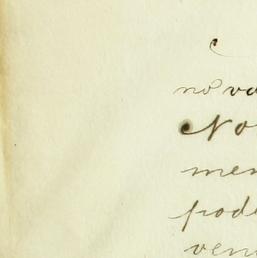 no va
No
men
pode
ven